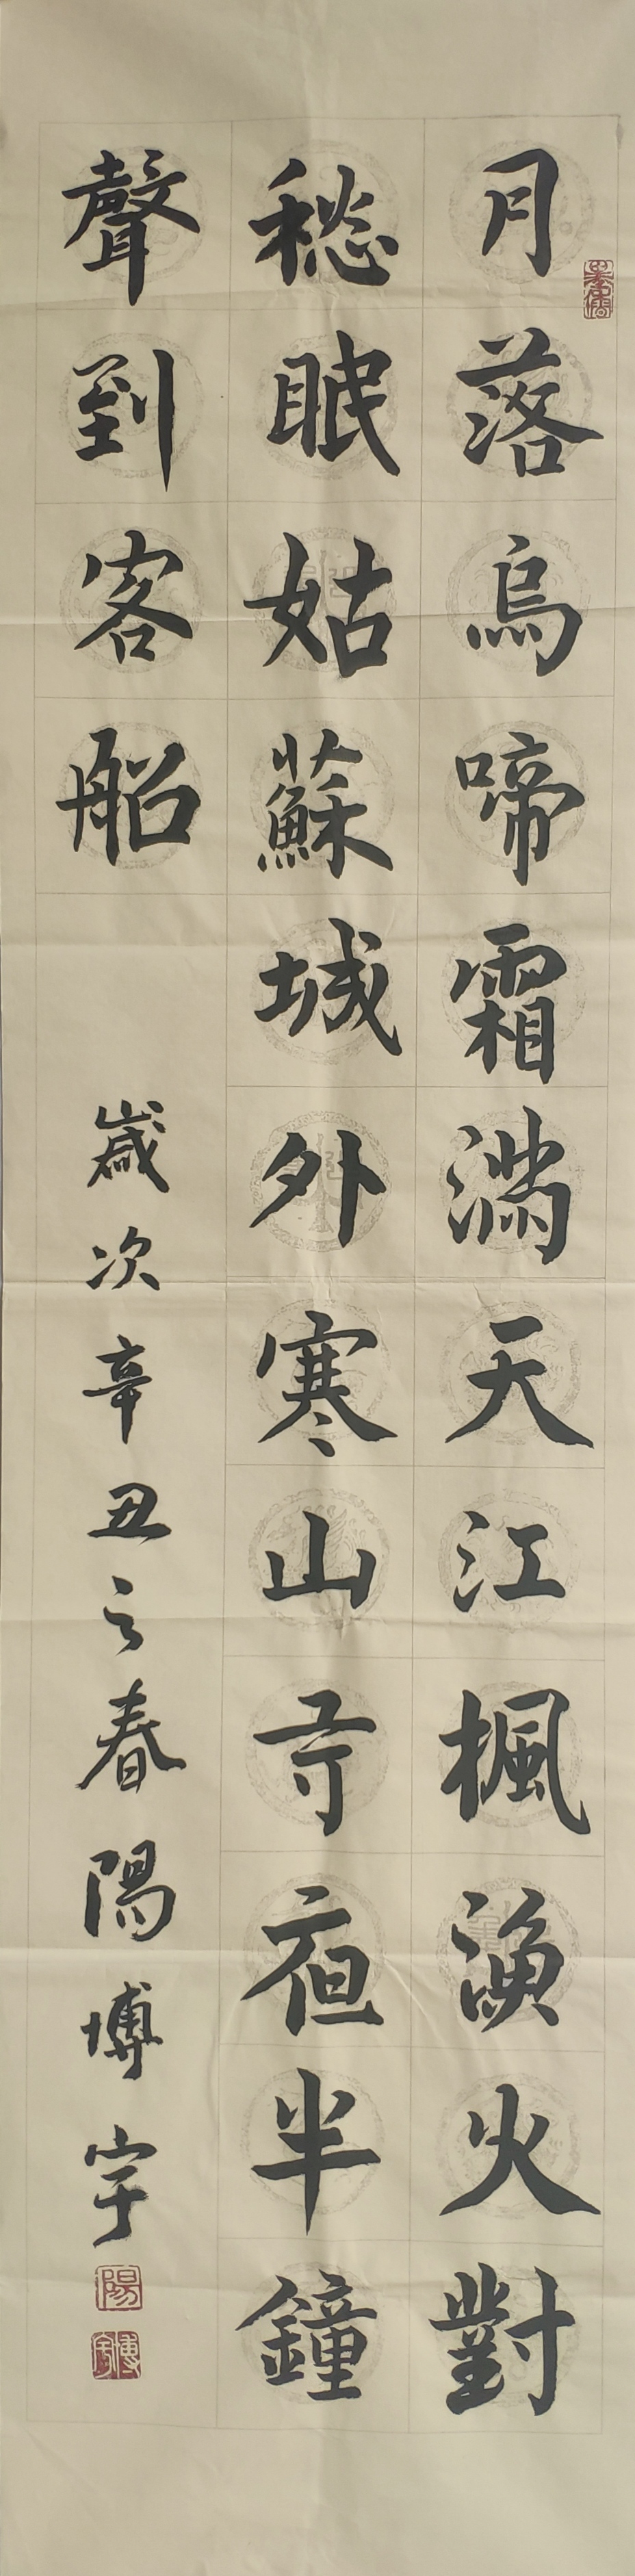 月落烏啼霜滿天江楓漁火對
愁眠姑蘇城外寒山寺夜半鐘
聲到客船
歲次辛丑之春陽博宇
陽
博宇